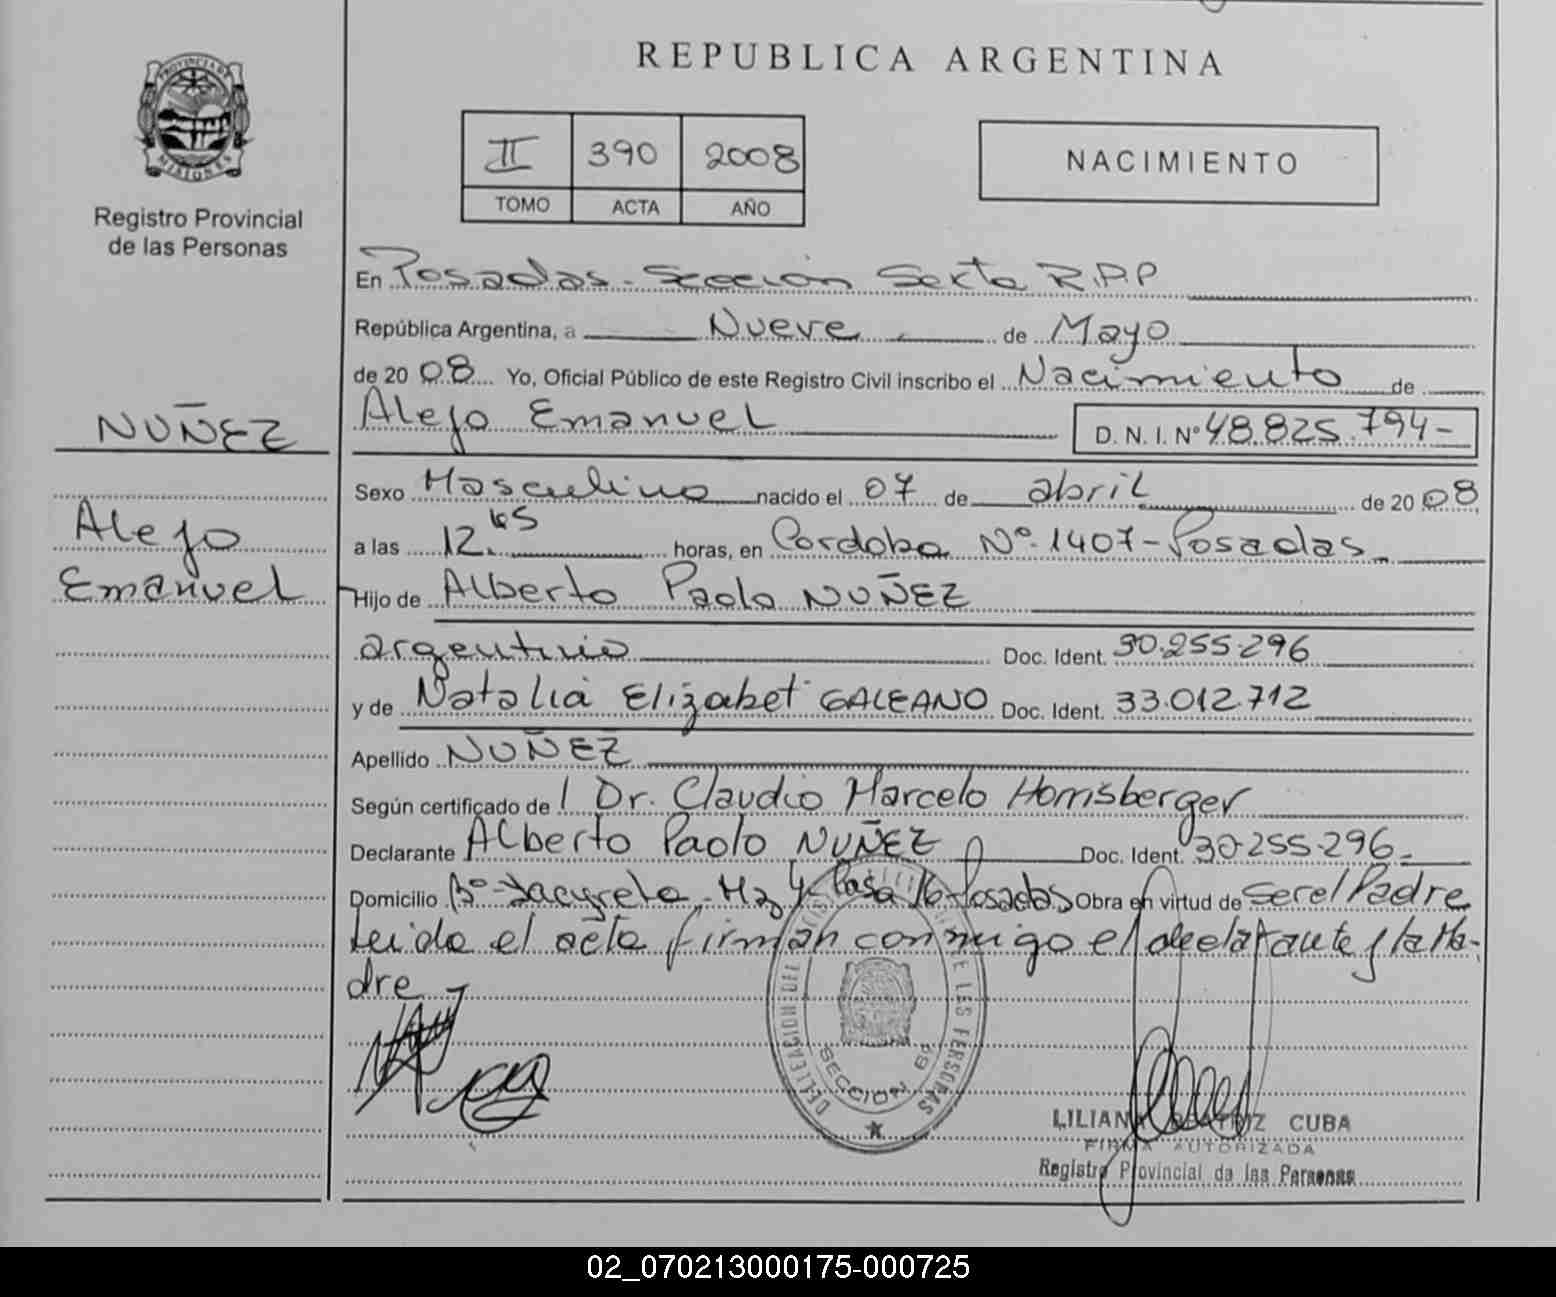 REPUBLICA ARGENTINA
PROVINCIA DE MISIONES
Registro Provincial
de las Personas
II 390 2008
TOMO ACTA AÑO
NACIMIENTO
En Posadas - Sección Sexta R.P.P
República Argentina, a Nueve de Mayo
de 20 08 Yo, Oficial Público de este Registro Civil inscribo el Nacimiento de
Alejo Emanuel D. N. I. Nº 48.825.794-
NUÑEZ
Alejo
Emanuel
Sexo Masculino nacido el 07 de abril de 20 08
a las 12. horas, en Cordoba Nº 1407 - Posadas
Hijo de Alberto Paolo NUÑEZ
argentino Doc. Ident. 30.255.296
y de Natalia Elizabet GALEANO Doc. Ident. 33.012.712
Apellido NUÑEZ
Según certificado de Dr. Claudio Marcelo Hornisberger
Declarante Alberto Paolo NUÑEZ Doc. Ident. 30.255.296
Domicilio Bº Yacyreta - Mz 4 Casa 16 - Posadas Obra en virtud de ser el Padre
Leida el acta firman conmigo el declarante y la Ma-
dre
DELEGACION DEL REGISTRO PROVINCIAL DE LAS PERSONAS
SECCION 6ª
LILIANA BEATRIZ CUBA
FIRMA AUTORIZADA
Registro Provincial de las Personas
02_070213000175-000725